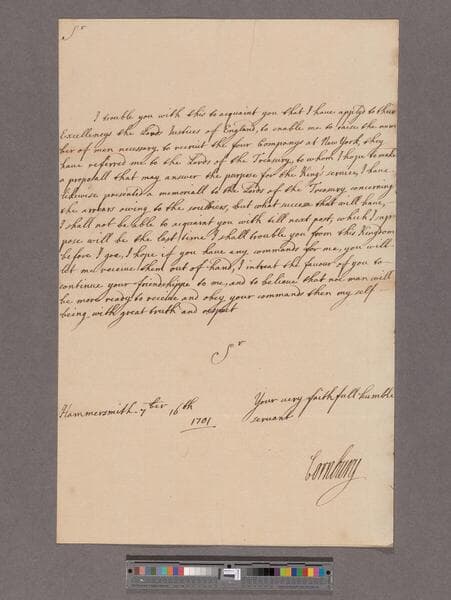 Sr
I trouble you with this to acquaint you that I have applyed to their
Excellencys the Lords Justices of England, to enable me to raise the num
ber of men necessary, to recruit the four Companys at New York, they
have referred me to the Lords of the Treasury, to whom I hope to make
a proposall that may answer the purpose for the King's service, I have
likewise presented a memoriall to the Lords of the Treasury concerning
the arrears owing to the souldiers, but what success that will have,
I shall not be able to acquaint you with till next post, which I sup=
pose will be the last time I shall trouble you from this Kingdom
before I goe, I hope if you have any commands for me, you will
let me receive them out of hand, I intreat the favour of you to
continue your friendshippe to me, and to believe that noe man will
be more ready to receive and obey your commands then my self
being with great truth and respect
Sr
Your very faithfull humble
Hammersmith 7ber 16th servant
1701
Cornbury